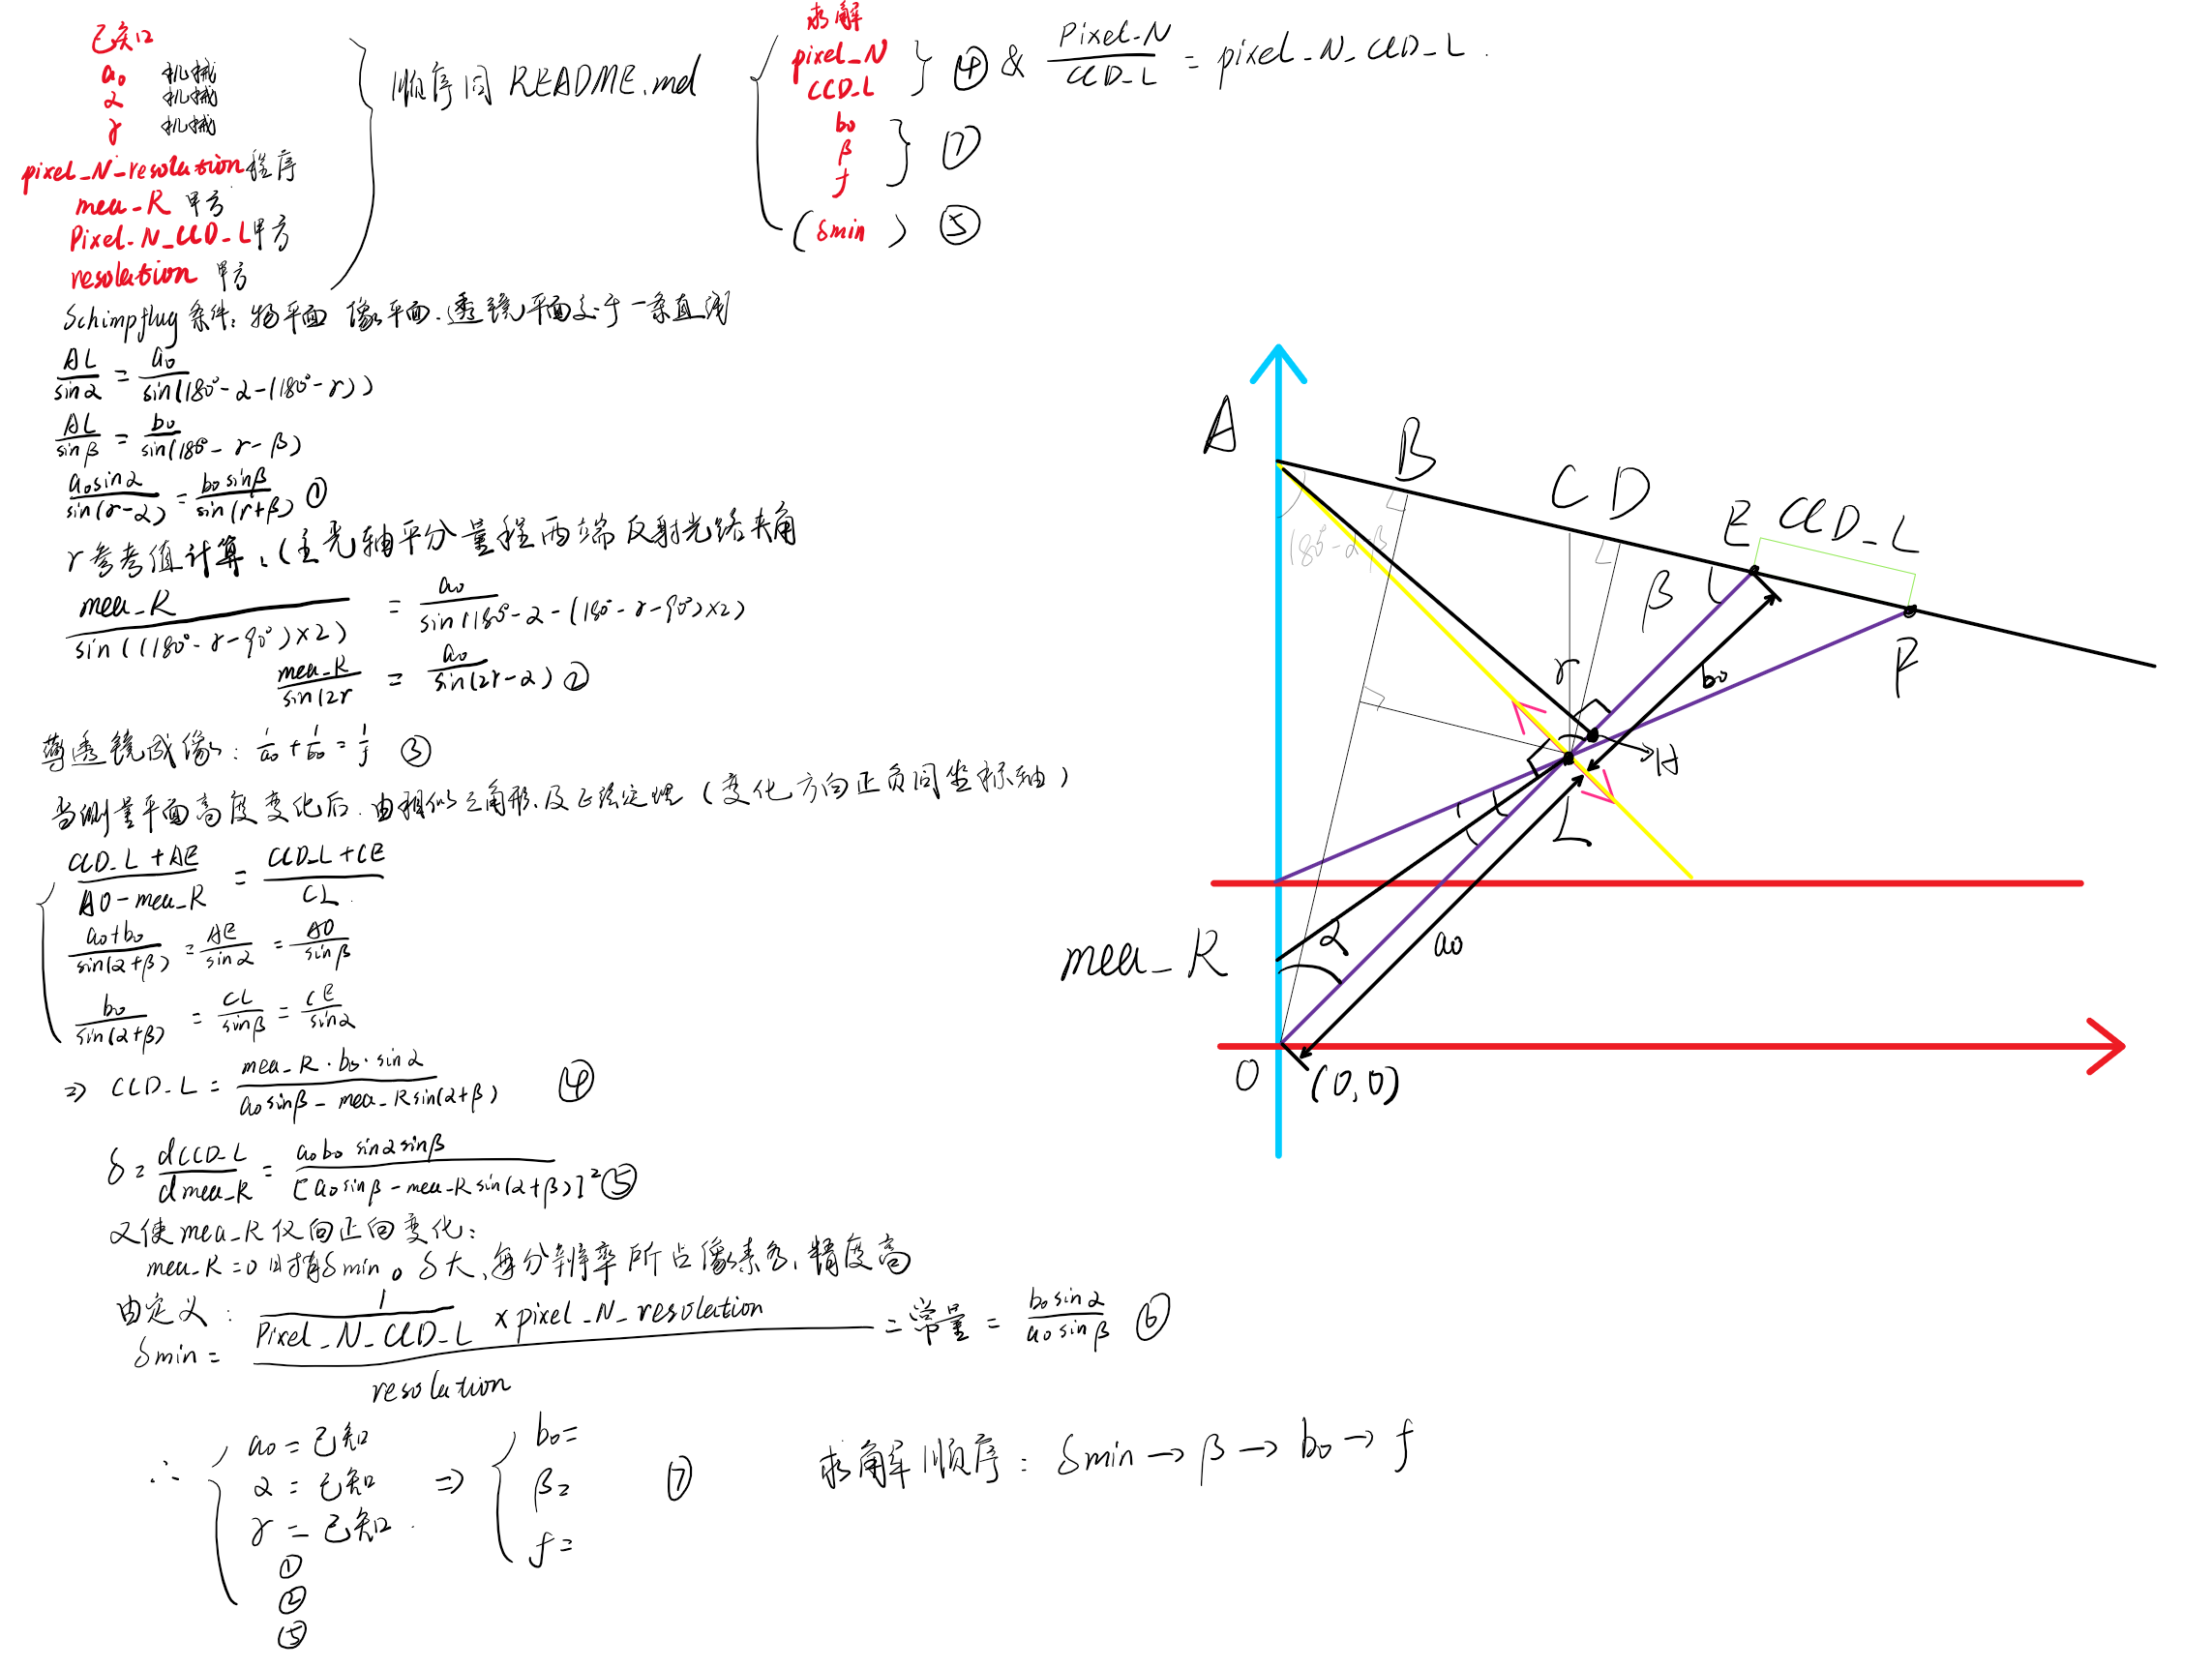 已知
a₀ 机械
α 机械
γ 机械
pixel_N_resolution 程序
mea_R 甲方
Pixel_N_CCD_L 甲方
resolution 甲方
顺序同 README.md
求解
pixel_N
CCD_L
④ & Pixel_N / CCD_L = pixel_N_CCD_L .
b₀
β
f
⑦
(δmin) ⑤
Schimpflug 条件: 物平面 像平面. 透镜平面交于一条直线
AL / sinα = a₀ / sin(180°-α-(180°-γ))
AL / sinβ = b₀ / sin(180°-γ-β)
a₀sinα / sin(γ-α) = b₀sinβ / sin(γ+β) ①
γ参考值计算: (主光轴平分量程两端反射光路夹角
mea_R / sin((180°-γ-90°)×2) = a₀ / sin(180°-α-(180°-γ-90°)×2)
mea_R / sin(2γ = a₀ / sin(2γ-α) ②
薄透镜成像: 1/a₀ + 1/b₀ = 1/f ③
当测量平面高度变化后. 由相似三角形. 及正弦定理 (变化方向正负同坐标轴)
CCD_L + AE / AO - mea_R = CCD_L + CE / CL .
a₀+b₀ / sin(α+β) = AE / sinα = AO / sinβ
b₀ / sin(α+β) = CL / sinβ = CE / sinα
⇒ CCD_L = mea_R · b₀ · sinα / a₀sinβ - mea_R sin(α+β) ④
δ = dCCD_L / dmea_R = a₀b₀ sinα sinβ / [a₀sinβ - mea_R sin(α+β)]² ⑤
又使 mea_R 仅向正向变化:
mea_R = 0 时有 δmin。δ大、每分辨率所占像素多、精度高
由定义: δmin = 1 / Pixel_N_CCD_L × pixel_N_resolution / resolution = 常量 = b₀sinα / a₀sinβ ⑥
∴ a₀ = 已知
α = 已知
γ = 已知 .
①
②
⑤
⇒ b₀ =
β =
f =
⑦
求解顺序: δmin → β → b₀ → f
A
B
C
D
E
CCD_L
F
180°-α-β
β
γ
b₀
H
L
α
a₀
mea_R
O
(0,0)